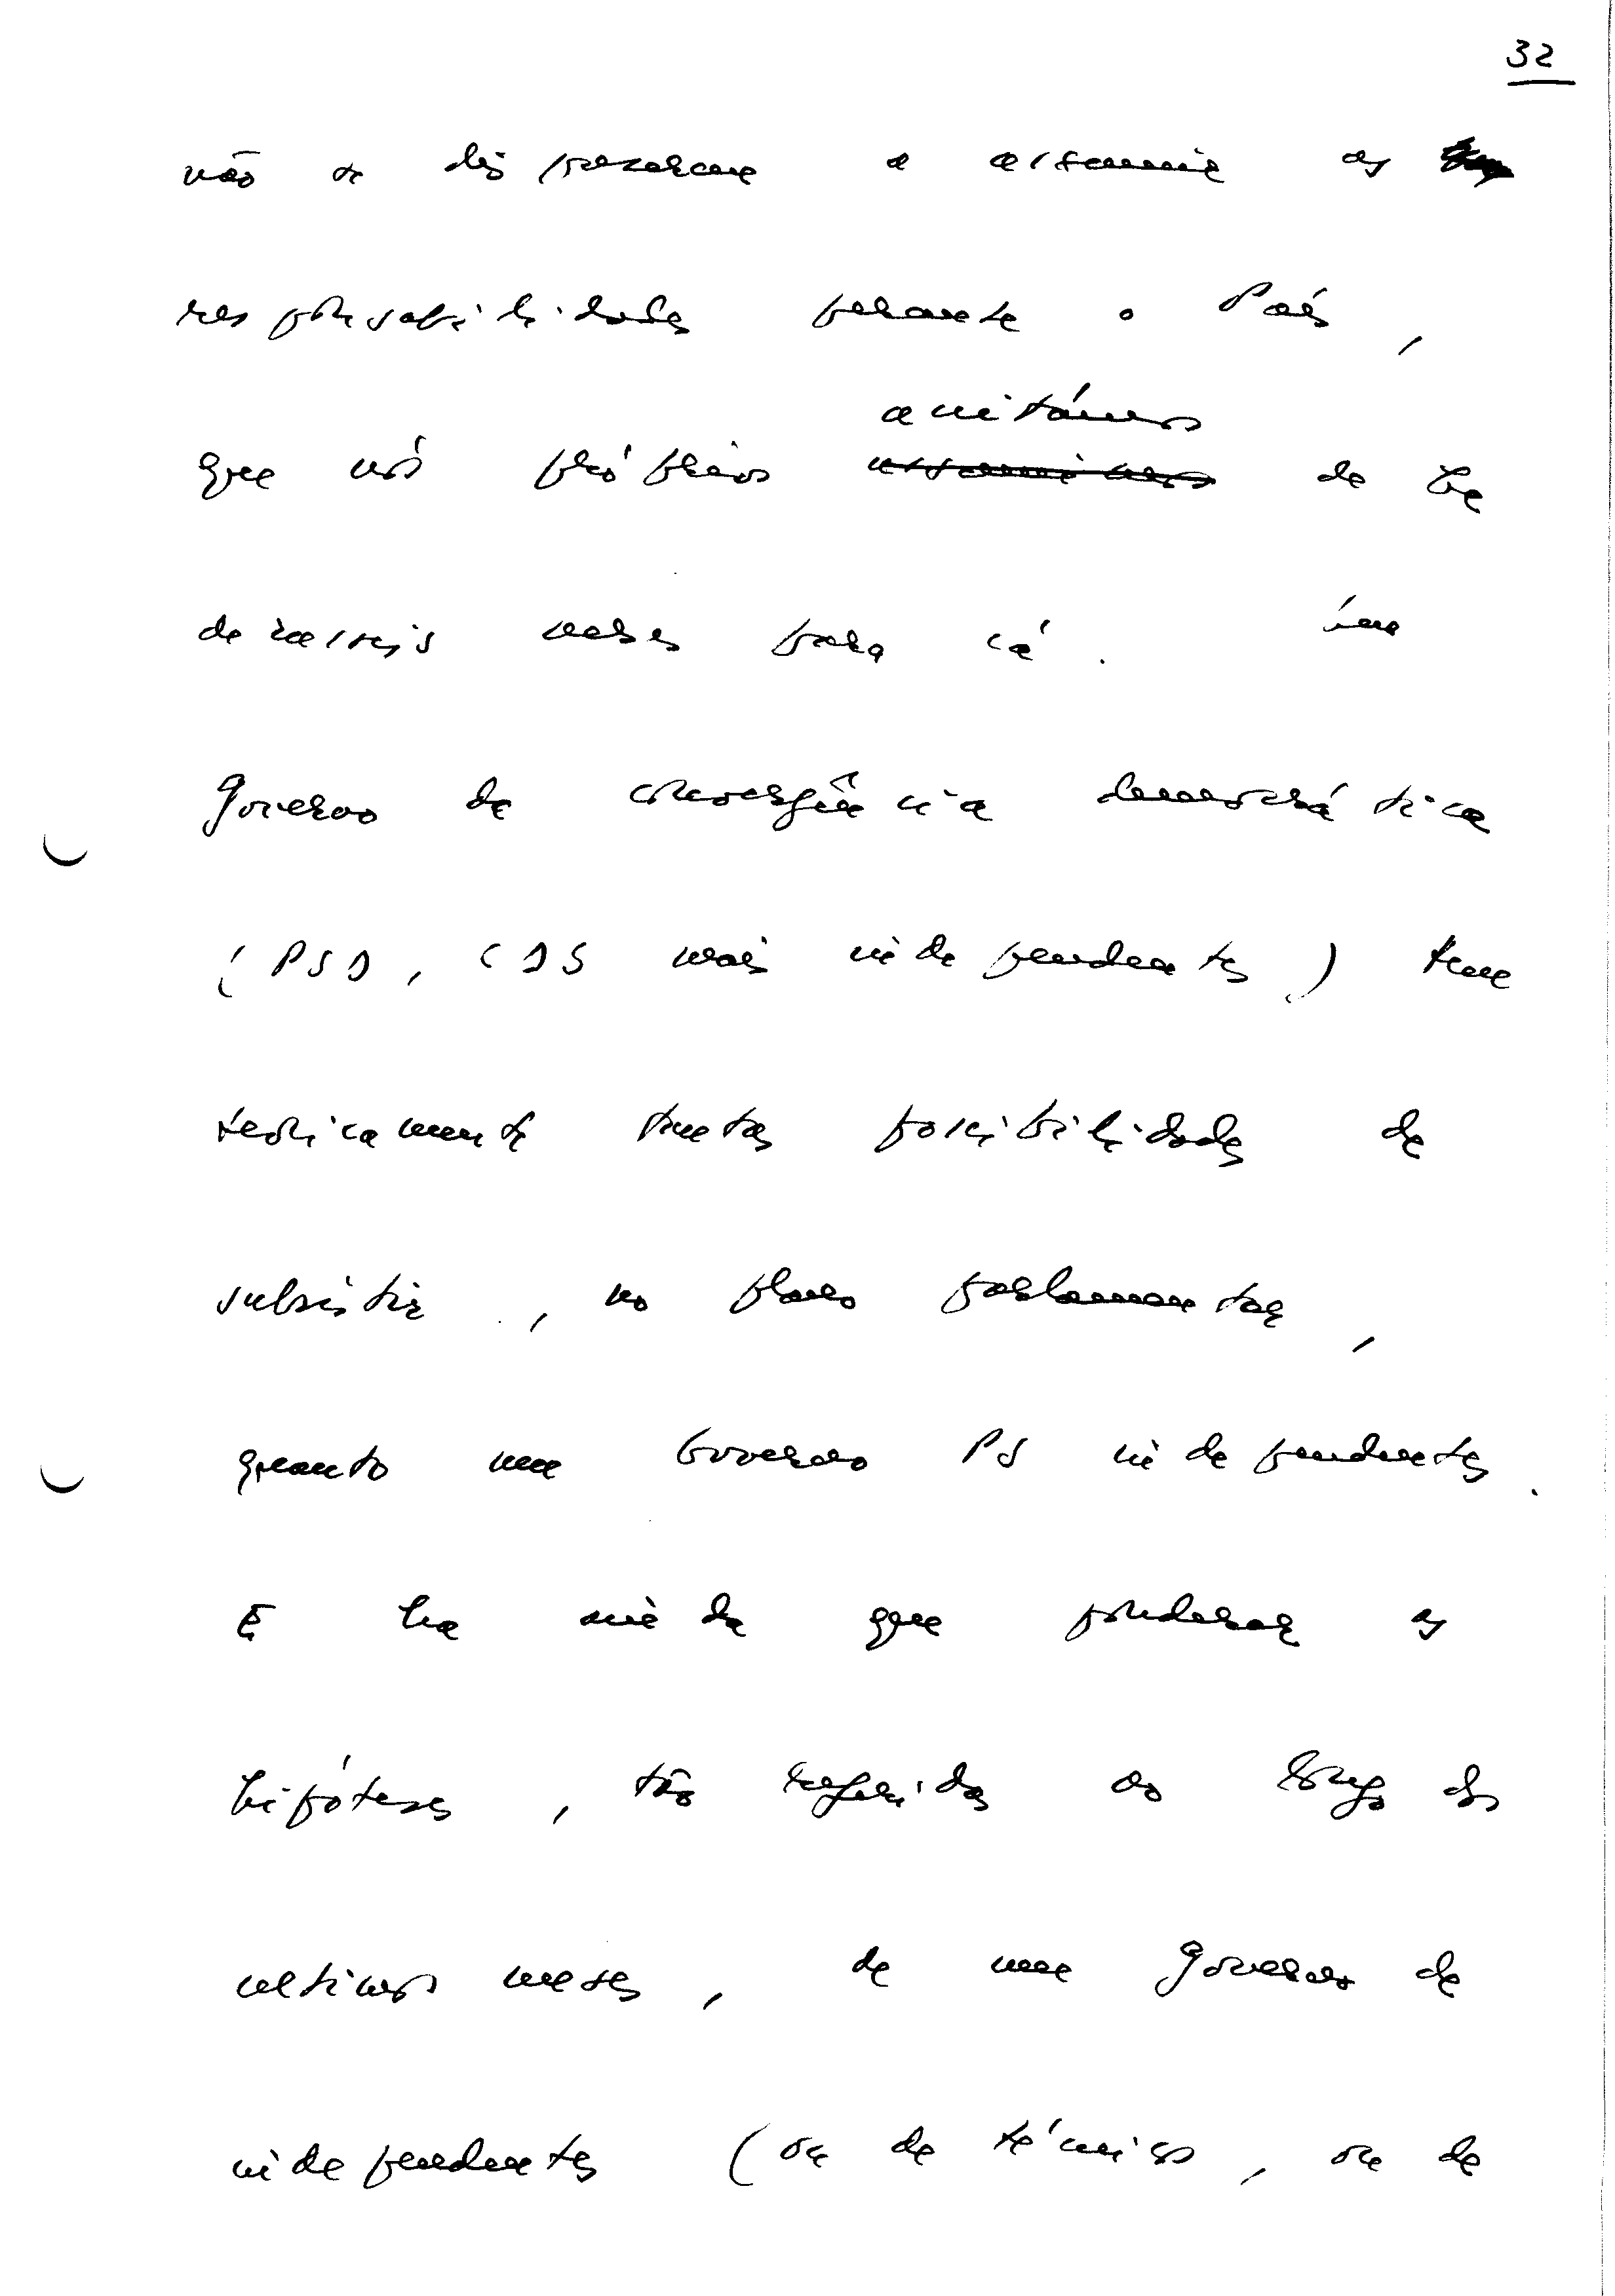 32
não se dispuseram a assumir as
responsabilidades perante o País,
aceitámos
que nós próprios assumimos de há
dezasseis meses para cá. Um
Governo de convergência democrática
(PSD, CDS mais independentes) tem
teoricamente tantas possibilidades de
subsistir, no plano parlamentar,
quanto um Governo PS independentes.
E há ainda que ponderar as
hipóteses, tão referidas ao longo dos
ultimos meses, de um Governo de
independentes (ou de técnicos, ou de